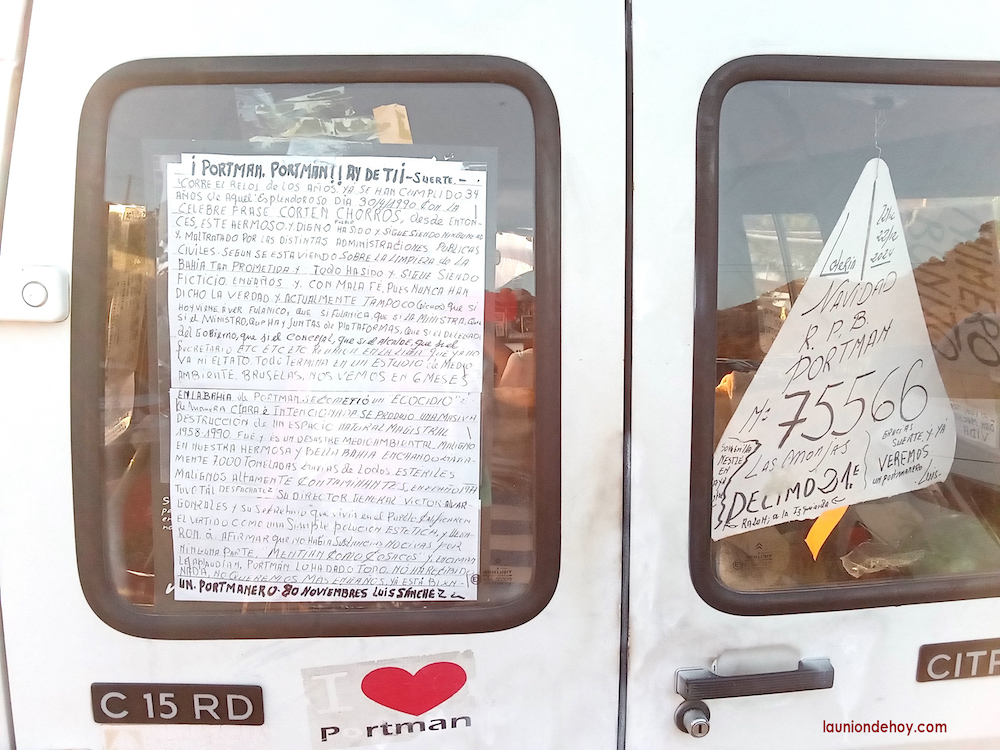 ¡ PORTMAN. PORTMAN!! AY DE TI¡-SUERTE.-
CORRE EL RELOJ de LOS AÑOS YA SE HAN CUMPLIDO 34
AÑOS de AQUEL ESPLENDOROSO DÍA 30/4/1990 CON LA
CELEBRE FRASE CORTEN CHORROS, desde ENTON-
CES, ESTE HERMOSO Y DIGNO PUEBLO HA SIDO Y SIGUE SIENDO
Y MALTRATADO POR LAS DISTINTAS ADMINISTRACIONES PUBLICAS
CIVILES. SEGUN SE ESTA VIENDO SOBRE LA LIMPIEZA de LA
BAHIA TAN PROMETIDA Y TODO HA SIDO Y SIGUE SIENDO
FICTICIO ENGAÑOS Y CON MALA FE, PUES NUNCA HAN
DICHO LA VERDAD Y ACTUALMENTE TAMPOCO QUE SI
HOY VIENE A VER FULANICO, QUE SI FULANICA, QUE SI LA MINISTRA, QUE
SI EL MINISTRO, QUE HAY JUNTAS de PLATAFORMAS, QUE SI EL DELEGADO
del GOBIERNO, QUE SI EL CONCEJAL, QUE SI EL ALCALDE, QUE SI EL
SECRETARIO ETC ETC ETC QUE YA NO
VA NI EL TATO. TODO TERMINA EN UN ESTUDIO de MEDIO
AMBIENTE. BRUSELAS, NOS VEMOS EN 6 MESES
EN LA BAHIA de PORTMAN SE COMETIÓ UN ECOCIDIO
de MANERA CLARA E INTENCIONADA SE PRODUJO UNA MASIVA
DESTRUCCION DE UN ESPACIO NATURAL MAGISTRAL
1958-1990 FUE Y ES UN DESASTRE MEDIOAMBIENTAL MALIGNO
EN NUESTRA HERMOSA Y BELLA BAHIA ECHANDO DIARIA-
MENTE 7.000 TONELADAS de LODOS. ESTERILES
MALIGNOS ALTAMENTE CONTAMINANTES,
TUVO TAL DESFACHATEZ SU DIRECTOR GENERAL VICTOR
GONZALES Y SU SOBRESUELDO QUE VIVIA EN EL PUEBLO
EL VERTIDO COMO UNA SIMPLE POLUCION ESTETICA, Y
RON A AFIRMAR QUE NO HABIA SUBSTANCIAS NOCIVAS POR
NINGUNA PARTE, MENTIAN COMO COSACOS Y
LE APLAUDIAN, PORTMAN LO HA DADO TODO. NO HA RECIBIDO
NADA, NO QUEREMOS MAS ENGAÑOS. YA ESTA BIEN-
UN. PORTMANERO. 20 NOVIEMBRES LUIS SÁNCHEZ
LOTERIA
22/12
2024
NAVIDAD
R. P. B.
PORTMAN
Nº 75566
LAS AMONJAS
DECIMO 21.€
RAZON; a LA IZQUIERDA
GRACIAS
SUERTE, Y YA
VEREMOS
UN PORTMANERO
LUIS-
C 15 RD
I
Portman
CITR
launiondehoy.com